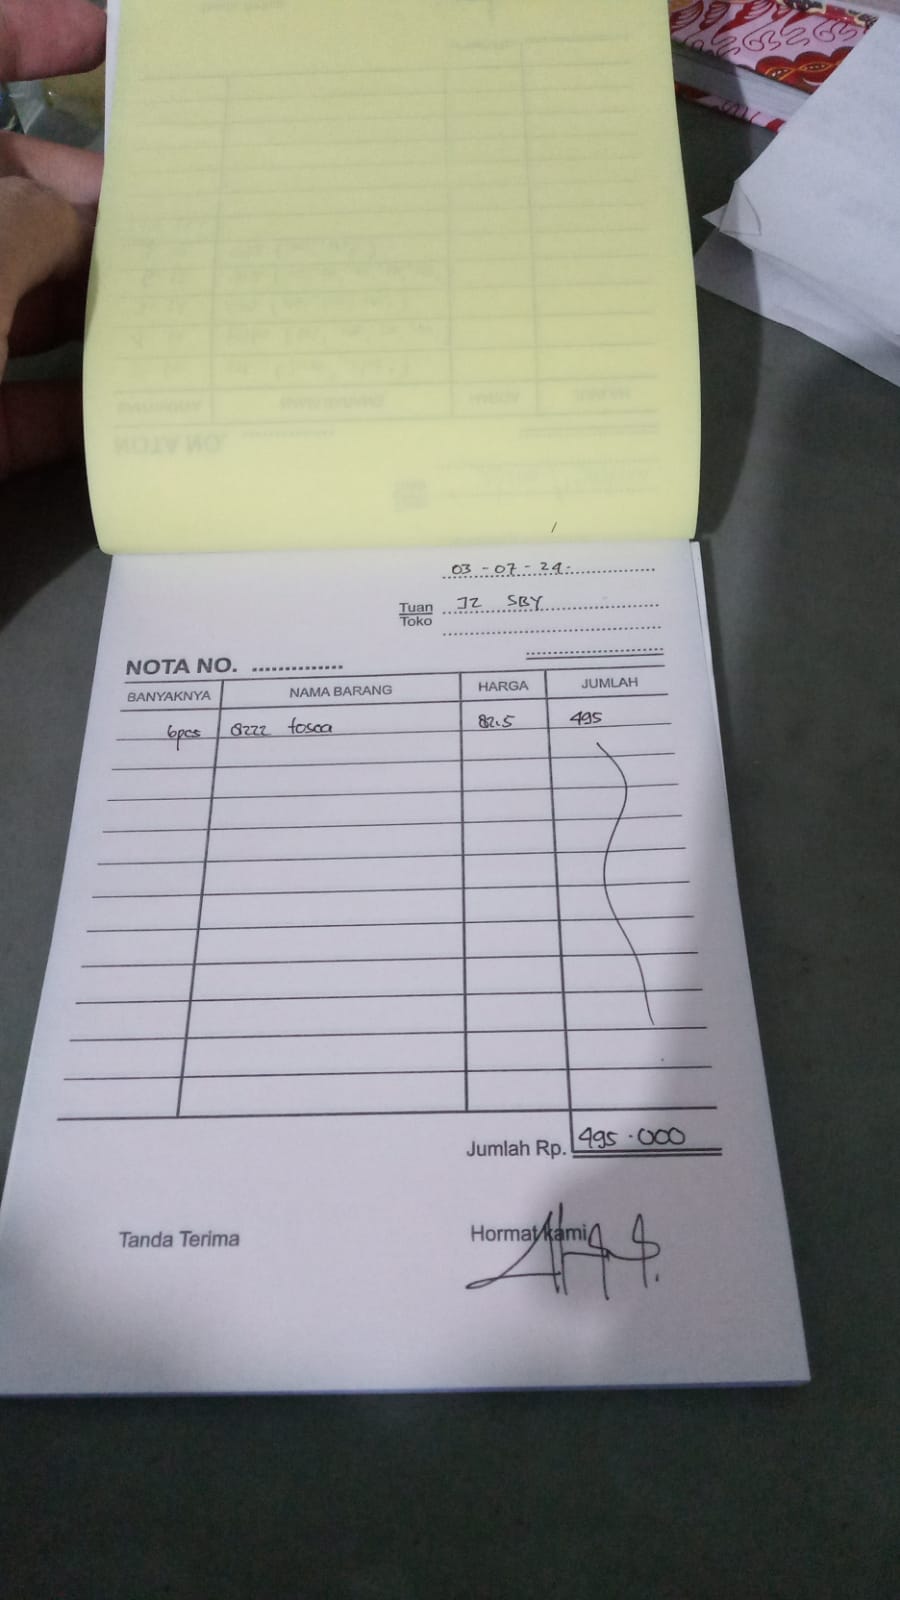 03 - 07 - 24.
Tuan JZ SBY
Toko
NOTA NO. ..............
BANYAKNYA NAMA BARANG HARGA JUMLAH
6pcs 8222 tosca 82.5 495
Jumlah Rp. 495.000
Tanda Terima Hormat kami